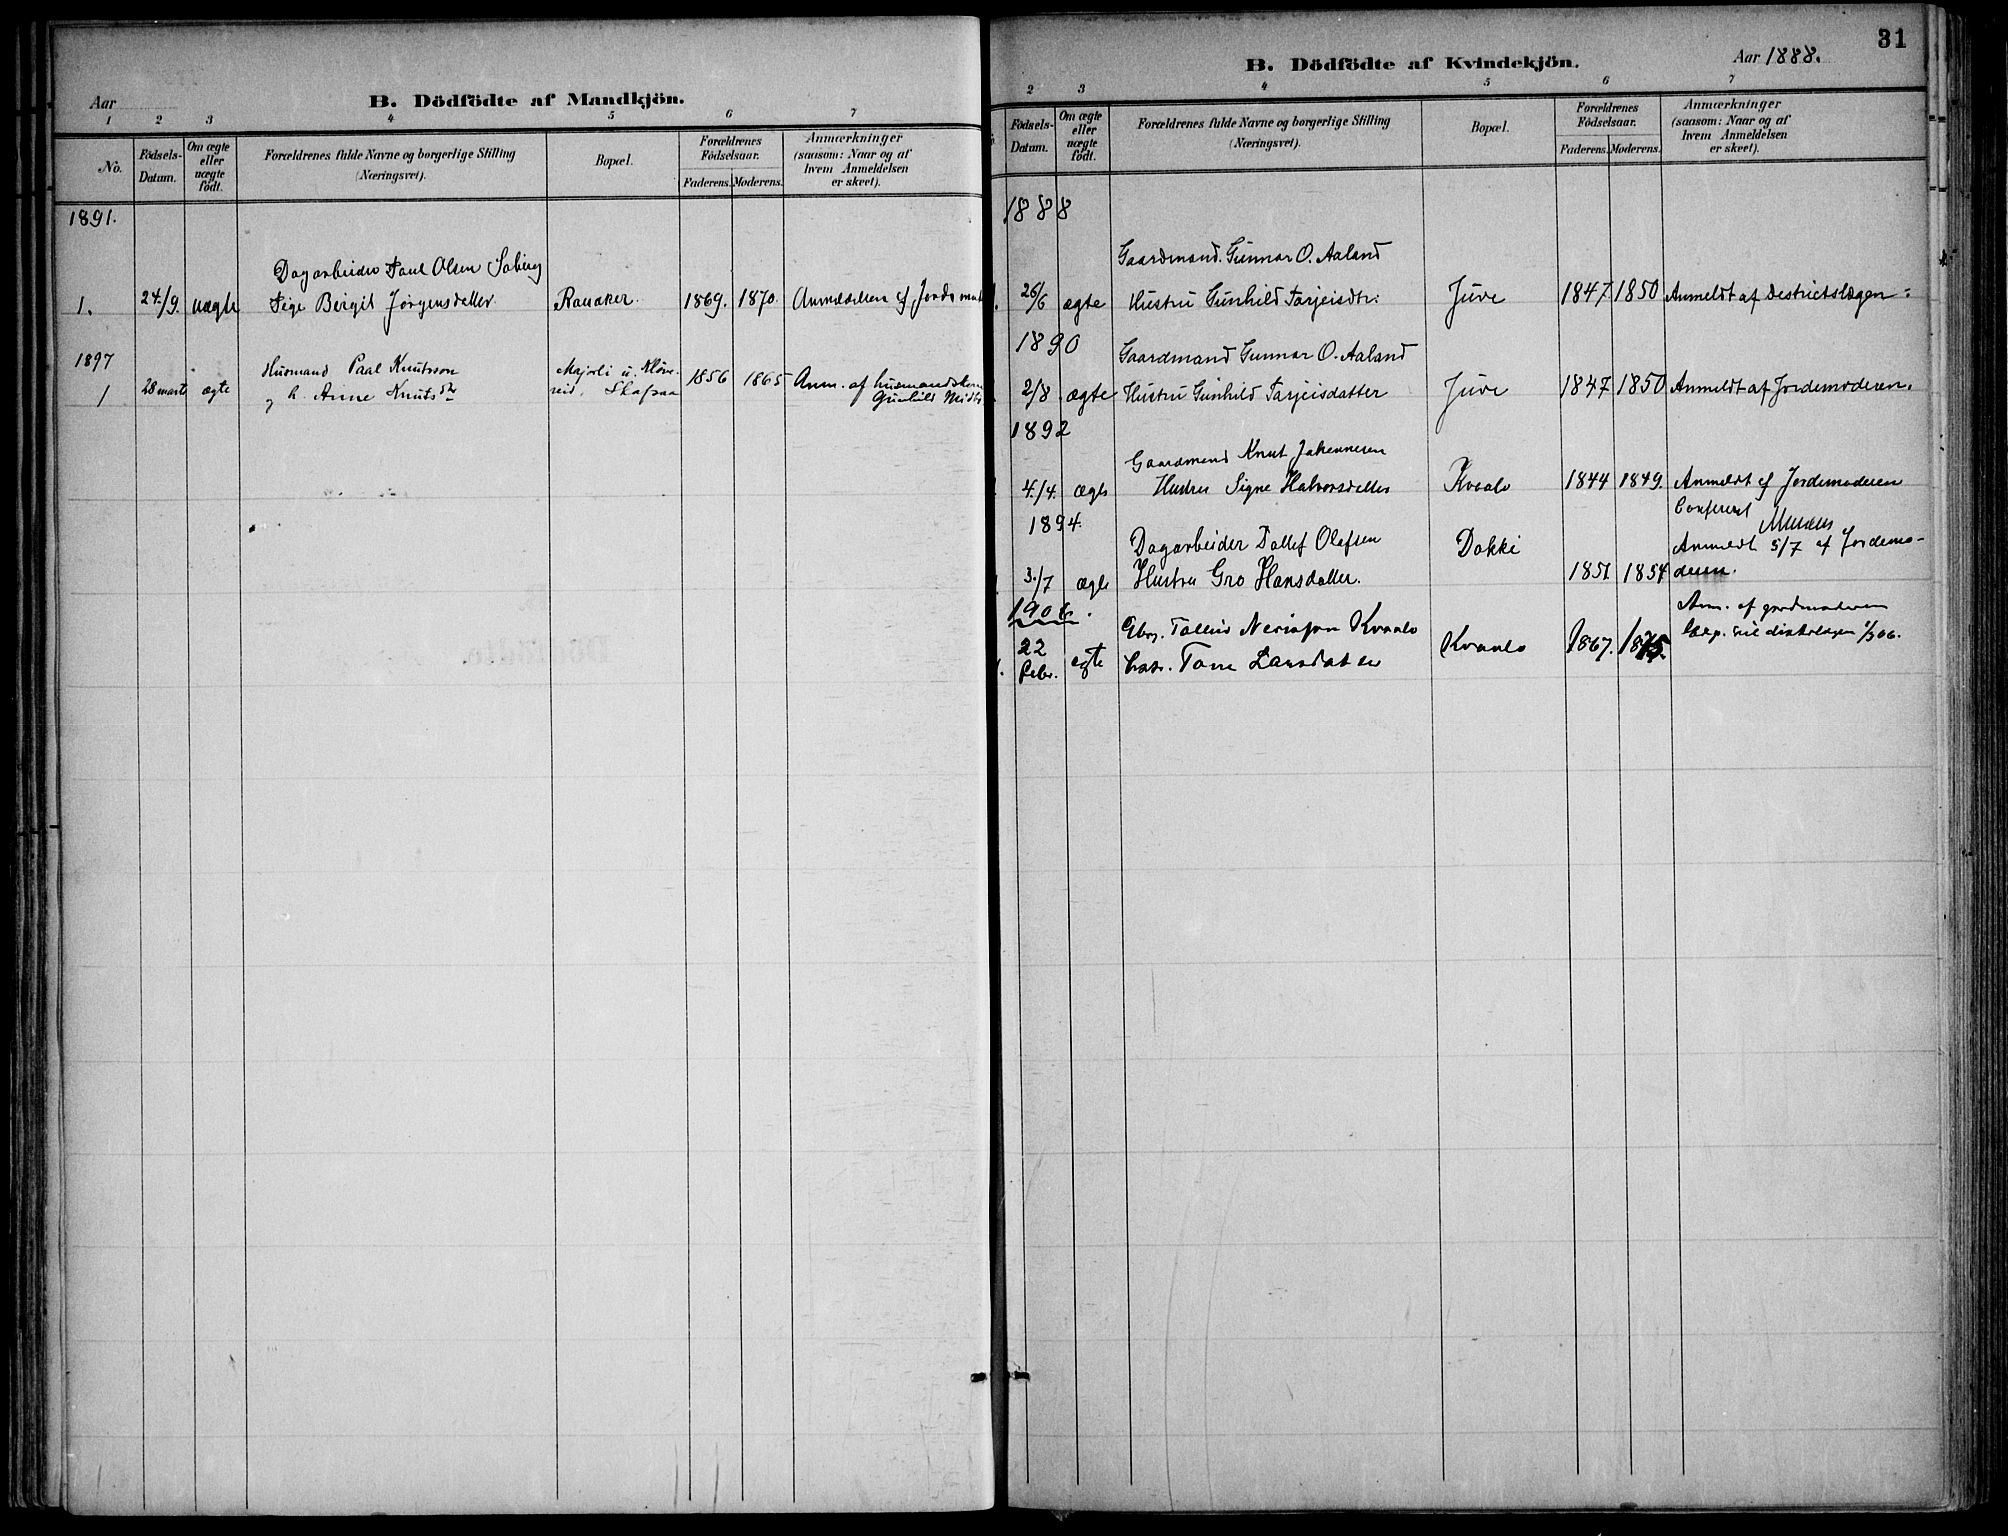 Aar
B. Dödfödte af Mandkjön.
1 2 3 4 5 6 7
No.
Födsels-Datum.
Om ægte eller uægte födt.
Forældrenes fulde Navne og borgerlige Stilling (Næringsvei).
Bopæl.
Forældrenes Födselsaar.
Faderens. Moderens.
Anmærkninger (saasom: Naar og af hvem Anmeldelsen er skeet).
1891.
Dagarbeider Paul Olsen
1. 24/9. uægte Pige Birgit Jörgensdatter Rauaker. 1869. 1870. Anmeldelsen af
1897
Husmand Paal Knutsson
1 28 marts ægte h. Anne Knutsdtr
Skafsaa 1856 1865 Anm. af
Gunhild
31
Aar 1888.
B. Dödfödte af Kvindekjön.
2 3 4 5 6 7
Födsels-Datum.
Om ægte eller uægte födt.
Forældrenes fulde Navne og borgerlige Stilling (Næringsvei).
Bopæl.
Forældrenes Födselsaar.
Faderens. Moderens.
Anmærkninger (saasom: Naar og af hvem Anmeldelsen er skeet).
1888
Gaardmand Gunnar O. Aaland
26/6 ægte Hustru Gunhild Tarjeisdtr: Juve 1847 1850 Anmeldt af Destrictslægen:
1890
Gaardmand Gunnar O. Aaland
2/8 ægte Hustru Gunhild Tarjeisdatter Juve 1847 1850 Anmeldt af Jordemoderen.
1892
Gaardmand Knut Johannesen
4/4. ægte Hustru Signe Halvorsdatter Kvaale 1844 1849. Anmeldt af Jordemoderen
Confereret
1894.
Dagarbeider Tallef Olafsen Dokki
Anmeldt 5/7 af Jordemo-
3./7 ægte Hustru Gro Hansdatter. 1851 1854 deren.
190
Anm. af jordmoderen
Gbr. Kvaale
22 Febr. egte Hustr. Tone Larsdatter Kvaale 1867. 1875.